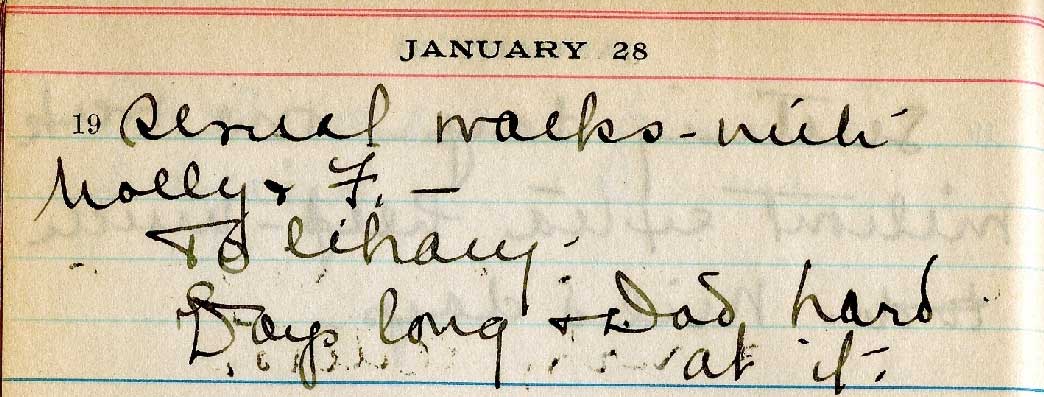 JANUARY 28
19 Several walks - with
Molly & F. —
To library.
Days long & Dad hard
at it.